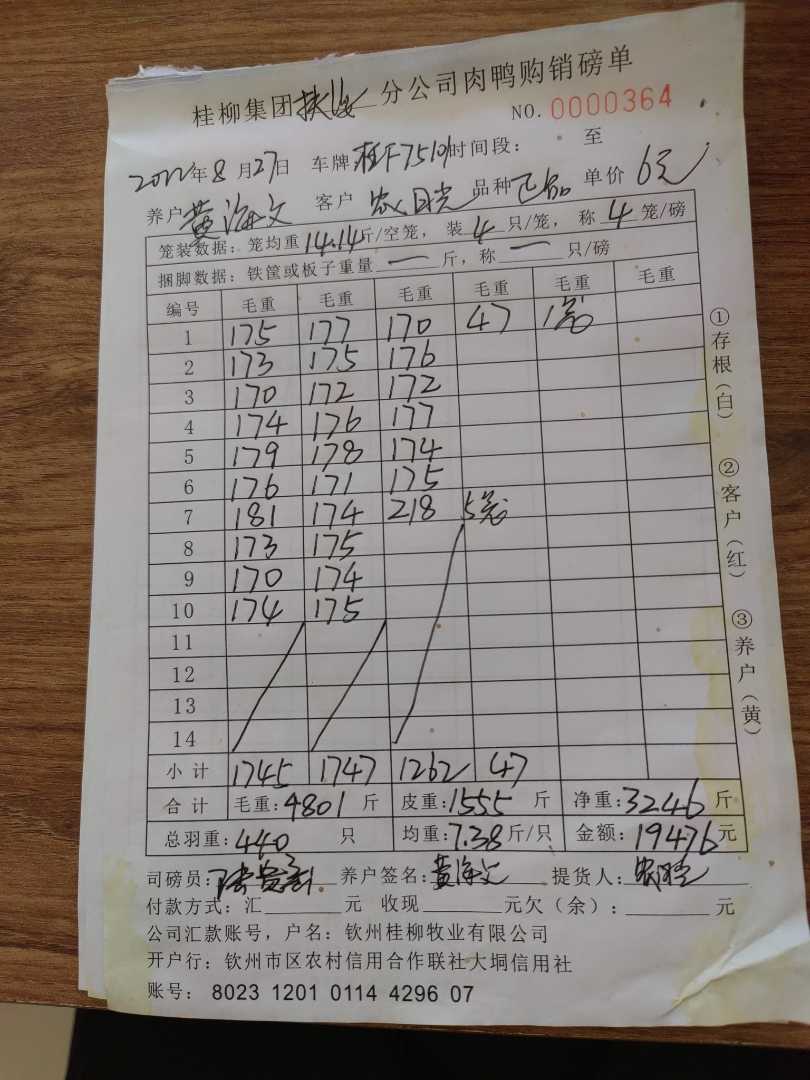 桂柳集团 分公司肉鸭购销磅单
NO. 0000364
2022年8月27日 车牌 桂F7510 时间段： 至
养户 黄海文 客户 品种 正品 单价 6元
笼装数据：笼均重 14.14 斤/空笼，装 4 只/笼，称 4 笼/磅
捆脚数据：铁筐或板子重量 一 斤，称 一 只/磅
编号 毛重 毛重 毛重 毛重 毛重 毛重
1 175 177 170 47 1笼
2 173 175 176
3 170 172 172
4 174 176 177
5 179 178 174
6 176 171 175
7 181 174 218 5笼
8 173 175
9 170 174
10 174 175
11
12
13
14
小计 1745 1747 1262 47
合计 毛重：4801 斤 皮重：1555 斤 净重：3246 斤
总羽重：440 只 均重：7.38 斤/只 金额：19476 元
司磅员： 养户签名：黄海文 提货人：
付款方式：汇 元 收现 元欠（余）： 元
公司汇款账号，户名：钦州桂柳牧业有限公司
开户行：钦州市区农村信用合作联社大垌信用社
账号：8023 1201 0114 4296 07
①存根（白）
②客户（红）
③养户（黄）